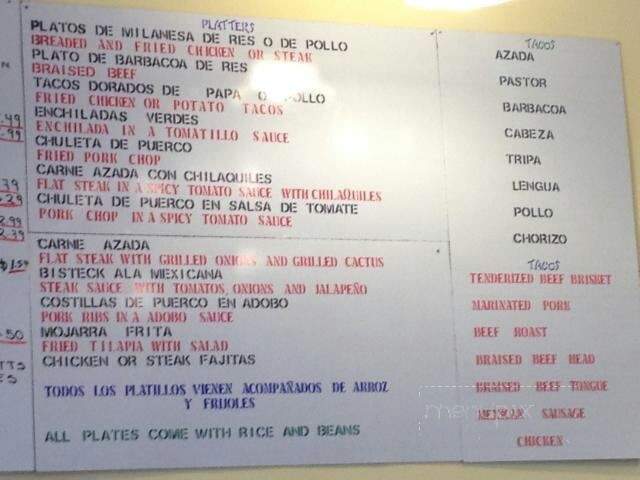 PLATTERS
PLATOS DE MILANESA DE RES O DE POLLO
BREADED AND FRIED CHICKEN OR STEAK
PLATO DE BARBACOA DE RES
BRAISED BEEF
TACOS DORADOS DE PAPA O POLLO
FRIED CHICKEN OR POTATO TACOS
ENCHILADAS VERDES
ENCHILADA IN A TOMATILLO SAUCE
CHULETA DE PUERCO
FRIED PORK CHOP
CARNE AZADA CON CHILAQUILES
FLAT STEAK IN A SPICY TOMATO SAUCE WITH CHILAQUILES
CHULETA DE PUERCO EN SALSA DE TOMATE
PORK CHOP IN A SPICY TOMATO SAUCE
CARNE AZADA
FLAT STEAK WITH GRILLED ONIONS AND GRILLED CACTUS
BISTECK ALA MEXICANA
STEAK SAUCE WITH TOMATOS, ONIONS AND JALAPEÑO
COSTILLAS DE PUERCO EN ADOBO
PORK RIBS IN A ADOBO SAUCE
MOJARRA FRITA
FRIED TILAPIA WITH SALAD
CHICKEN OR STEAK FAJITAS
TODOS LOS PLATILLOS VIENEN ACOMPAÑADOS DE ARROZ
Y FRIJOLES
ALL PLATES COME WITH RICE AND BEANS
TACOS
AZADA
PASTOR
BARBACOA
CABEZA
TRIPA
LENGUA
POLLO
CHORIZO
TACOS
TENDERIZED BEEF BRISKET
MARINATED PORK
BEEF ROAST
BRAISED BEEF HEAD
BRAISED BEEF TONGUE
MEXICAN SAUSAGE
CHICKEN
menupix
.49
.99
.39
2.99
2.39
$1.50
.50